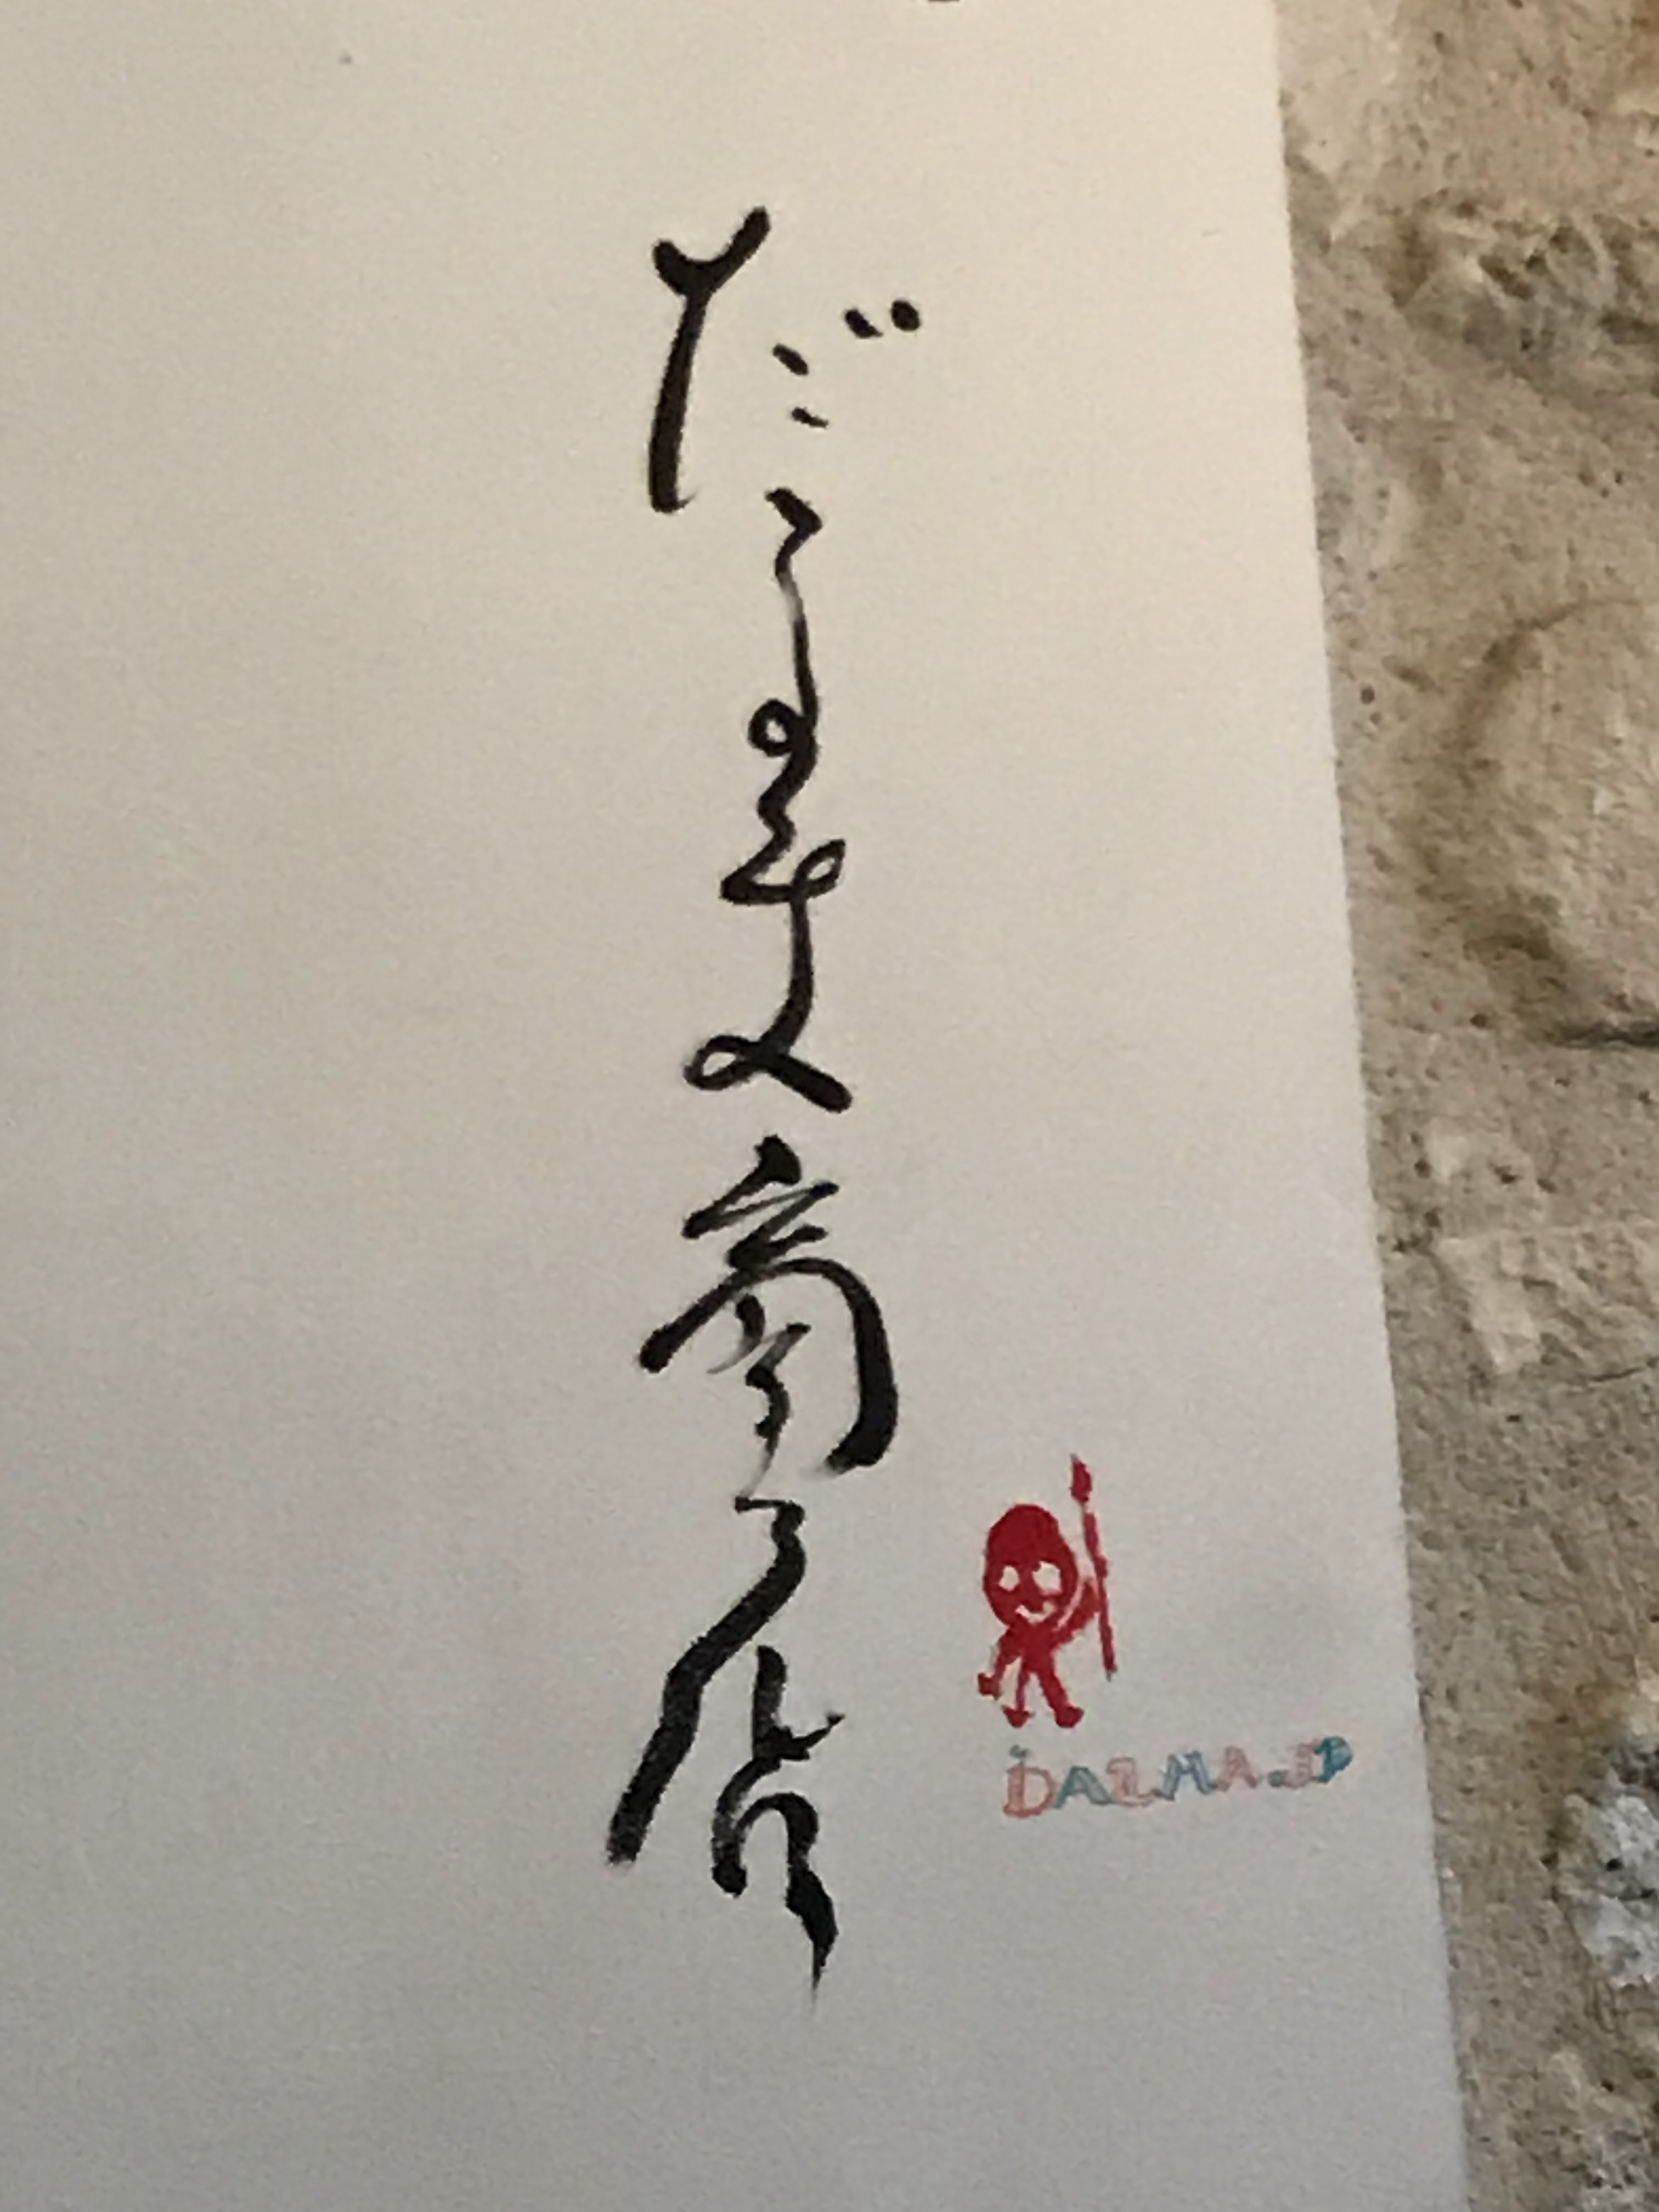 だるま商店
DARMA.JP